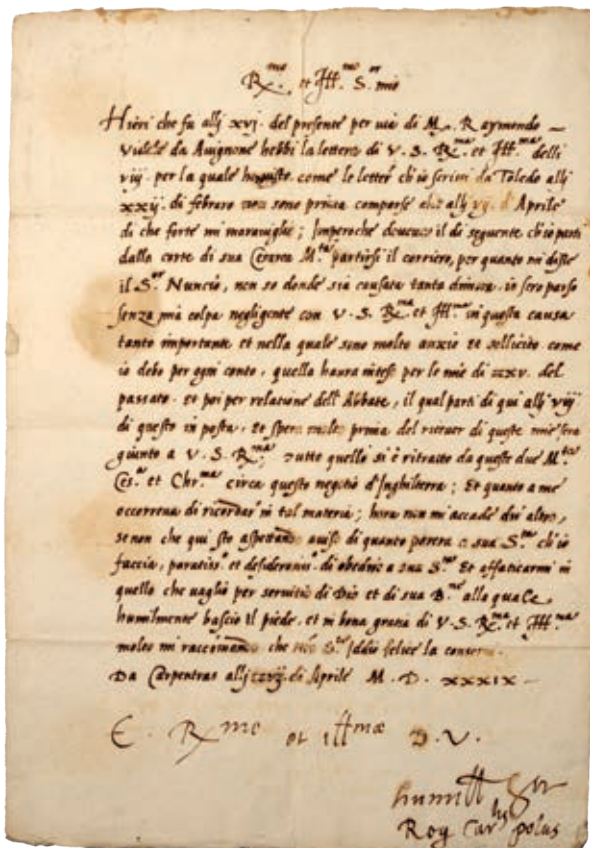 R.mo et Ill.mo S.or mio
Hieri che fu alli xvj. del presente per via di M. Raymondo
da Avignone hebbi la lettera di V. S. R.ma et Ill.ma delli
viij. per la quale come le lettere ch'io scrissi da Toledo alli
xxij. di febraro non sono prima comparse che alli vij. d'Aprile
di che forte mi maraviglio; Imperoche il di seguente ch'io parti
dalla corte di sua Cesarea M.tà partirsi il corriero, per quanto mi disse
il S.or Nuncio, non so donde sia causata tanta dimora. in sero parso
senza mia colpa negligente con V. S. R.ma et Ill.ma in questa causa
tanto importante et nella quale sono molto anxio et sollicito come
io debo per ogni conto, quella haura inteso per le mie di xxv. del
passato. et poi per relatione dell'Abbate, il qual parti di qui alli viij
di questo in posta. et spero molto prima del ricever di queste mie sera
giunto a V. S. R.ma; tutto quello si è ritratto da queste due M.tà
Ces.a et Chr.ma circa questo negotio d'Inghilterra; Et quanto a me
occorreva di ricordar' in tal materia; hora non mi accade dir altro,
se non che qui sto aspettando aviso di quanto parera a sua S.tà ch'io
faccia, paratiss.o et desideroso di obedire a sua S.tà Et affaticarmi in
quello che vaglio per servitio di Dio et di sua B.ne alla quale
humilmente bascio il piede, et in bona gratia di V. S. R.ma et Ill.ma
molto mi raccomando che Iddio felice la conservi.
Da Carpentras alli di Aprile M. D. XXXIX
E. R.mo et Ill.mae D. V.
humill Ser
Reg Car.lis polus